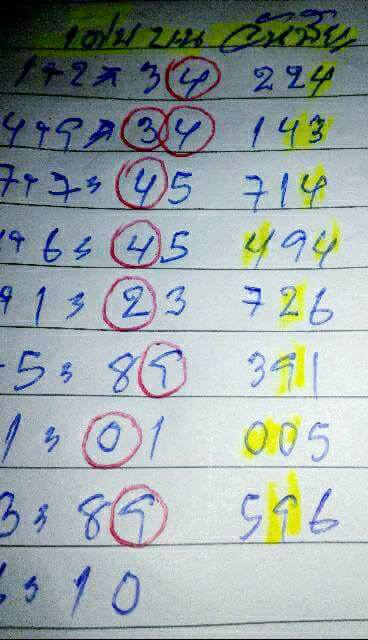 เด่น บน
1+2=34 224
4+9=34 143
7+7=45 714
+6=45 494
1=23 726
5=89 391
1=01 005
3=89 596
=10